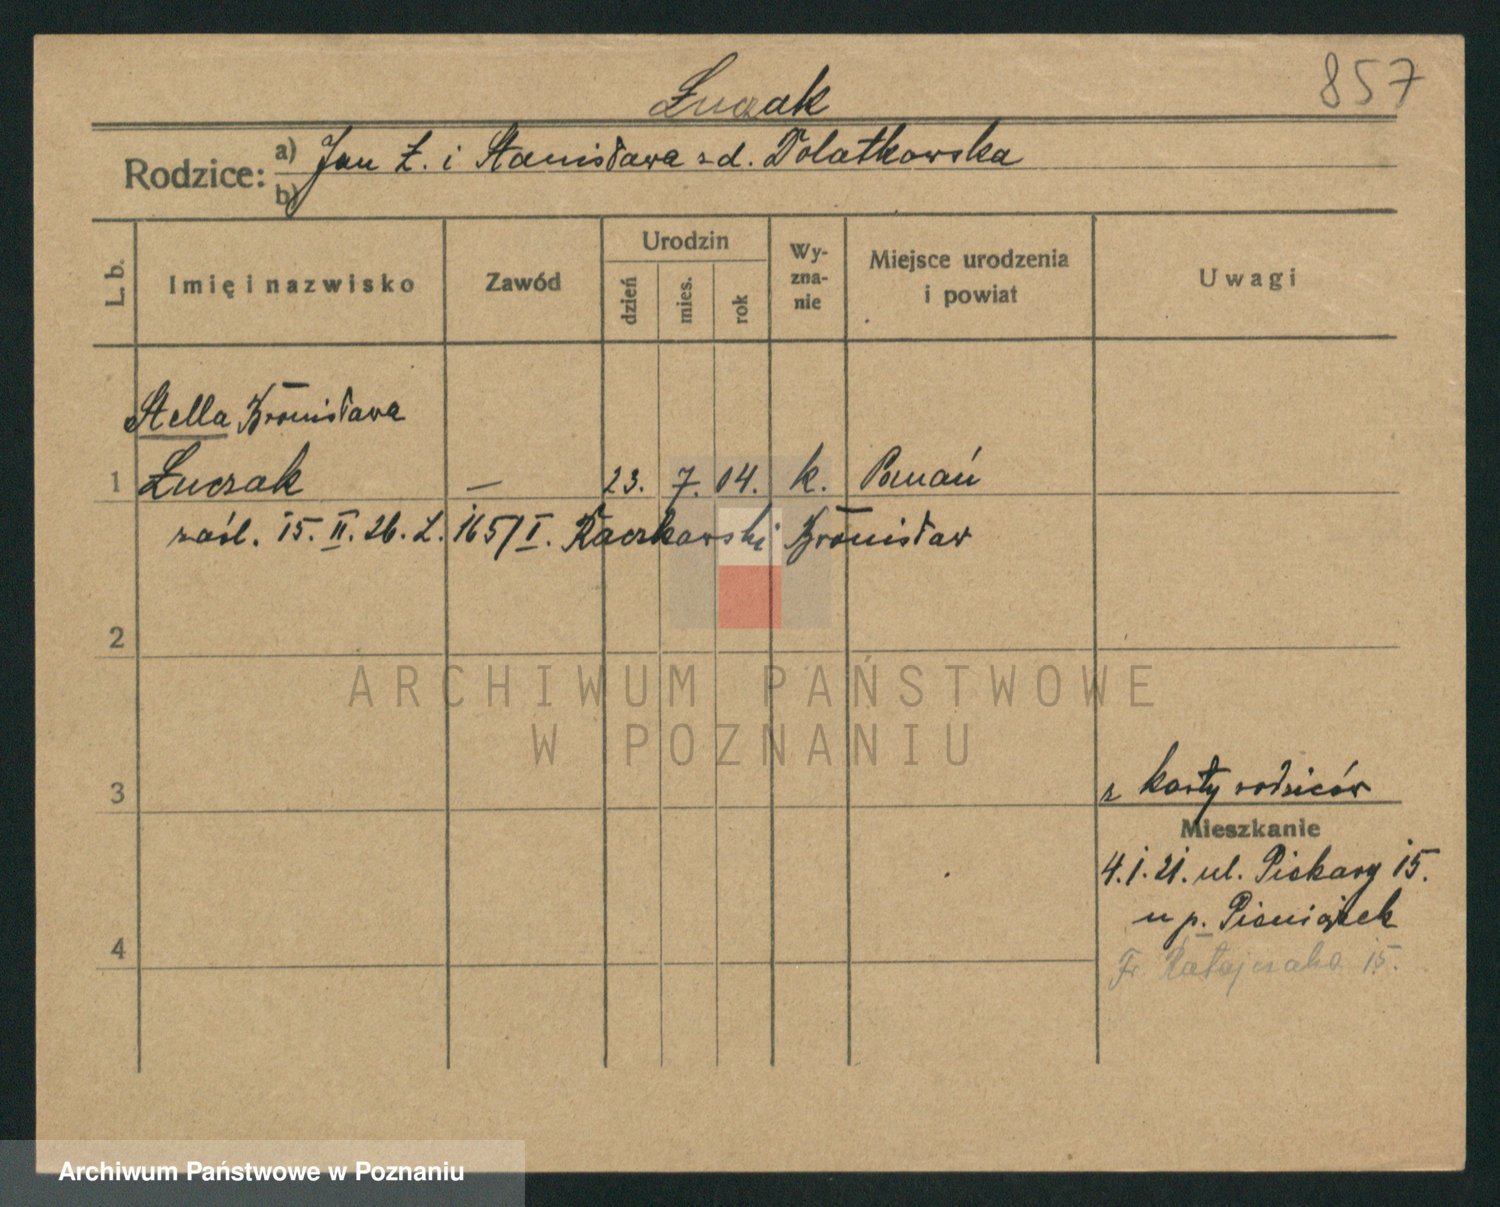 857
Łuczak
Rodzice: a) Jan Ł. i Stanisława z d. Dolatkowska
b)
L. b. Imię i nazwisko Zawód Urodzin dzień mies. rok Wy-zna-nie Miejsce urodzenia i powiat Uwagi
Stella Bronisława
1 Łuczak — 23. 7. 04. k. Poznań
zaśl. 15. II. 26. L. 165/I. Kaczkowski Bronisław
2
ARCHIWUM PAŃSTWOWE
W POZNANIU
z karty rodziców
3
Mieszkanie
4. I. 21. ul. Piekary 15.
u p. Pieniążek
4
Fr. Ratajczaka 15.
Archiwum Państwowe w Poznaniu